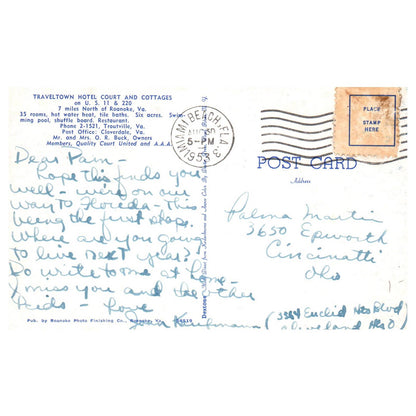 TRAVELTOWN HOTEL COURT AND COTTAGES
on U. S. 11 & 220
7 miles North of Roanoke, Va.
35 rooms, hot water boat, tile baths. Six acres. Swim-
ming pool, shuffle board. Restaurant.
Phone 2-1521, Troutville, Va.
Post Office: Cloverdale, Va.
Mr. and Mrs. O. R. Buck, Owners
Members, Quality Court United and A.A.A.
Dear Pam-
Hope this finds you
well - we're on our
way to Florida - this
being the first stop.
Where are you going
to live next year?
Do write to me at home-
I miss you and the other
kids - Love
Joan Kaufmann (3384 Euclid Hts Blvd
Cleveland Hts O)
Pub. by Roanoke Photo Finishing Co., Roanoke, Va.
MIAMI BEACH, FLA.
AUG
5-PM
1953
3
PLACE
STAMP
HERE
POST CARD
Address
Palma Martin
3650 Epworth
Cincinnati
Ohio